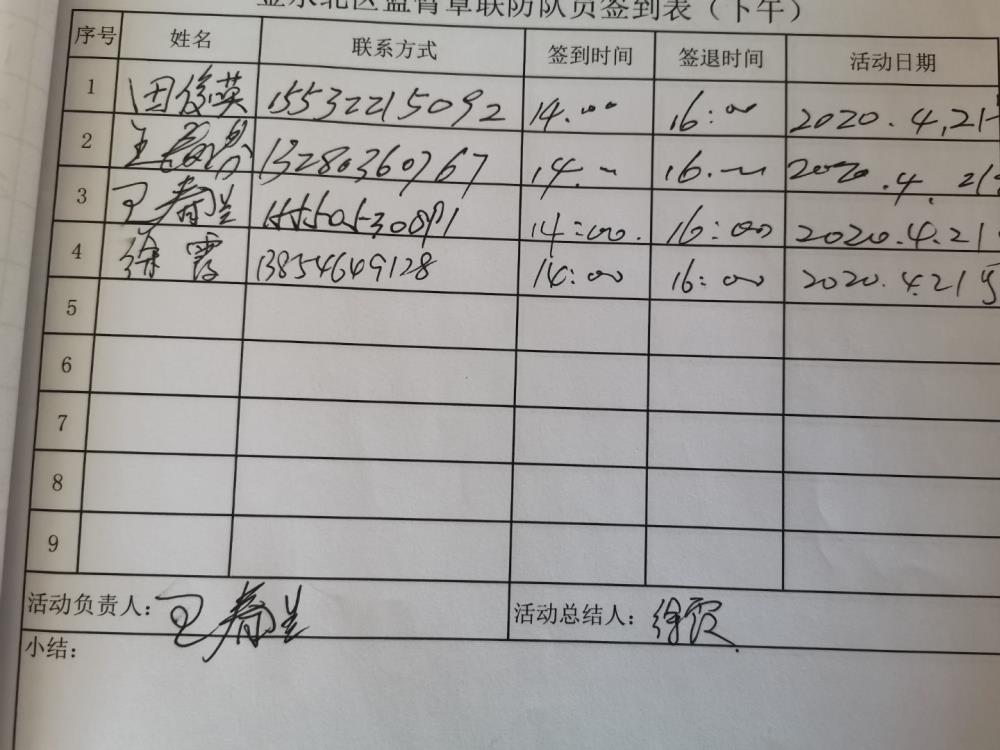 北区蓝臂章联防队员签到表（下午）
序号 姓名 联系方式 签到时间 签退时间 活动日期
1 田俊英 15532215092 14.00 16:00 2020.4.21
2 王 13280360767 14. 16. 2020.4. 21
3 王春兰 14:00. 16:00 2020.4.21
4 徐霞 13854649128 14:00 16:00 2020.4.21号
5
6
7
8
9
活动负责人：王春兰 活动总结人：徐霞.
小结：